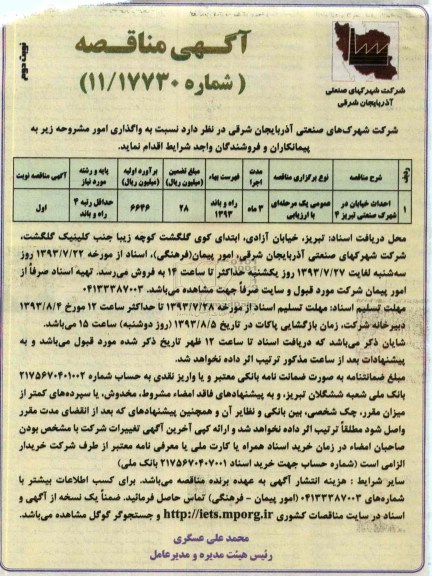 آگهی مناقصه
(شماره ۱۱/۱۷۷۳۰)
نوبت دوم
شرکت شهرکهای صنعتی
آذربایجان شرقی
شرکت شهرک‌های صنعتی آذربایجان شرقی در نظر دارد نسبت به واگذاری امور مشروحه زیر به
پیمانکاران و فروشندگان واجد شرایط اقدام نماید.
ردیف شرح مناقصه نوع برگزاری مناقصه مدت اجرا فهرست بهاء مبلغ تضمین (میلیون ریال) برآورد اولیه (میلیون ریال) پایه و رشته مورد نیاز آگهی مناقصه نوبت
۱ احداث خیابان در شهرک صنعتی تبریز ۴ عمومی یک مرحله‌ای با ارزیابی ۳ ماه راه و باند ۱۳۹۳ ۲۸ ۶۶۴۶ حداقل رتبه ۴ راه و باند اول
محل دریافت اسناد: تبریز، خیابان آزادی، ابتدای کوی گلگشت کوچه زیبا جنب کلینیک گلگشت،
شرکت شهرکهای صنعتی آذربایجان شرقی، امور پیمان(فرهنگی)، اسناد از مورخه ۱۳۹۳/۷/۲۲ روز
سه‌شنبه لغایت ۱۳۹۳/۷/۲۷ روز یکشنبه حداکثر تا ساعت ۱۴ به فروش می‌رسد. تهیه اسناد صرفاً از
امور پیمان شرکت مورد قبول و سایت صرفاً جهت مشاهده می‌باشد. ۰۴۱۳۳۳۸۷۰۰۳
مهلت تسلیم اسناد: مهلت تسلیم اسناد از مورخه ۱۳۹۳/۷/۲۸ تا حداکثر ساعت ۱۲ مورخ ۱۳۹۳/۸/۴
دبیرخانه شرکت، زمان بازگشایی پاکات در تاریخ ۱۳۹۳/۸/۵ (روز دوشنبه) ساعت ۱۵ می‌باشد.
شایان ذکر می‌باشد که دریافت اسناد تا ساعت ۱۲ ظهر تاریخ ذکر شده مورد قبول میباشد و به
پیشنهادات بعد از ساعت مذکور ترتیب اثر داده نخواهد شد.
مبلغ ضمانتنامه به صورت ضمانت نامه بانکی معتبر و یا واریز نقدی به حساب شماره ۲۱۷۵۶۷۰۴۰۱۰۰۲
بانک ملی شعبه ششگلان تبریز، و به پیشنهادهای فاقد امضاء مشروط، مخدوش، یا سپرده‌های کمتر از
میزان مقرر، چک شخصی، بین بانکی و نظایر آن و همچنین پیشنهادهای که بعد از انقضای مدت مقرر
واصل شود مطلقاً ترتیب اثر داده نخواهد شد و ارائه کپی آخرین آگهی تغییرات شرکت با مشخص بودن
صاحبان امضاء در زمان خرید اسناد همراه با کارت ملی یا معرفی نامه معتبر از طرف شرکت خریدار
الزامی است (شماره حساب جهت خرید اسناد ۲۱۷۵۶۷۰۴۰۷۰۰۱ بانک ملی)
سایر شرایط : هزینه انتشار آگهی به عهده برنده مناقصه می‌باشد. برای کسب اطلاعات بیشتر با
شماره‌های ۰۴۱۳۳۳۸۷۰۰۳ (امور پیمان - فرهنگی) تماس حاصل فرمائید. ضمناً یک نسخه از آگهی و
اسناد در سایت مناقصات کشوری http://iets.mporg.ir و جستجوگر گوگل مشاهده می‌باشد.
محمد علی عسگری
رئیس هیئت مدیره و مدیرعامل